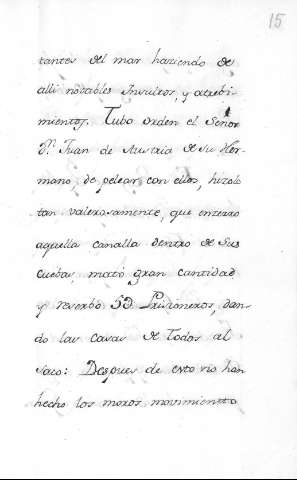 15
tantes del mar haziendo de
alli notables Insultos, y atrebi-
mientos. Tubo orden el Señor
Dn. Juan de Austria de su Her-
mano, de pelear con ellos, hizolo
tan valerosamente, que enzerro
aquella canalla dentro de sus
cuebas, mató gran cantidad
y reserbó Prisioneros, dan-
do las casas de todos al
saco: Despues de esto no han
hecho los moros movimiento